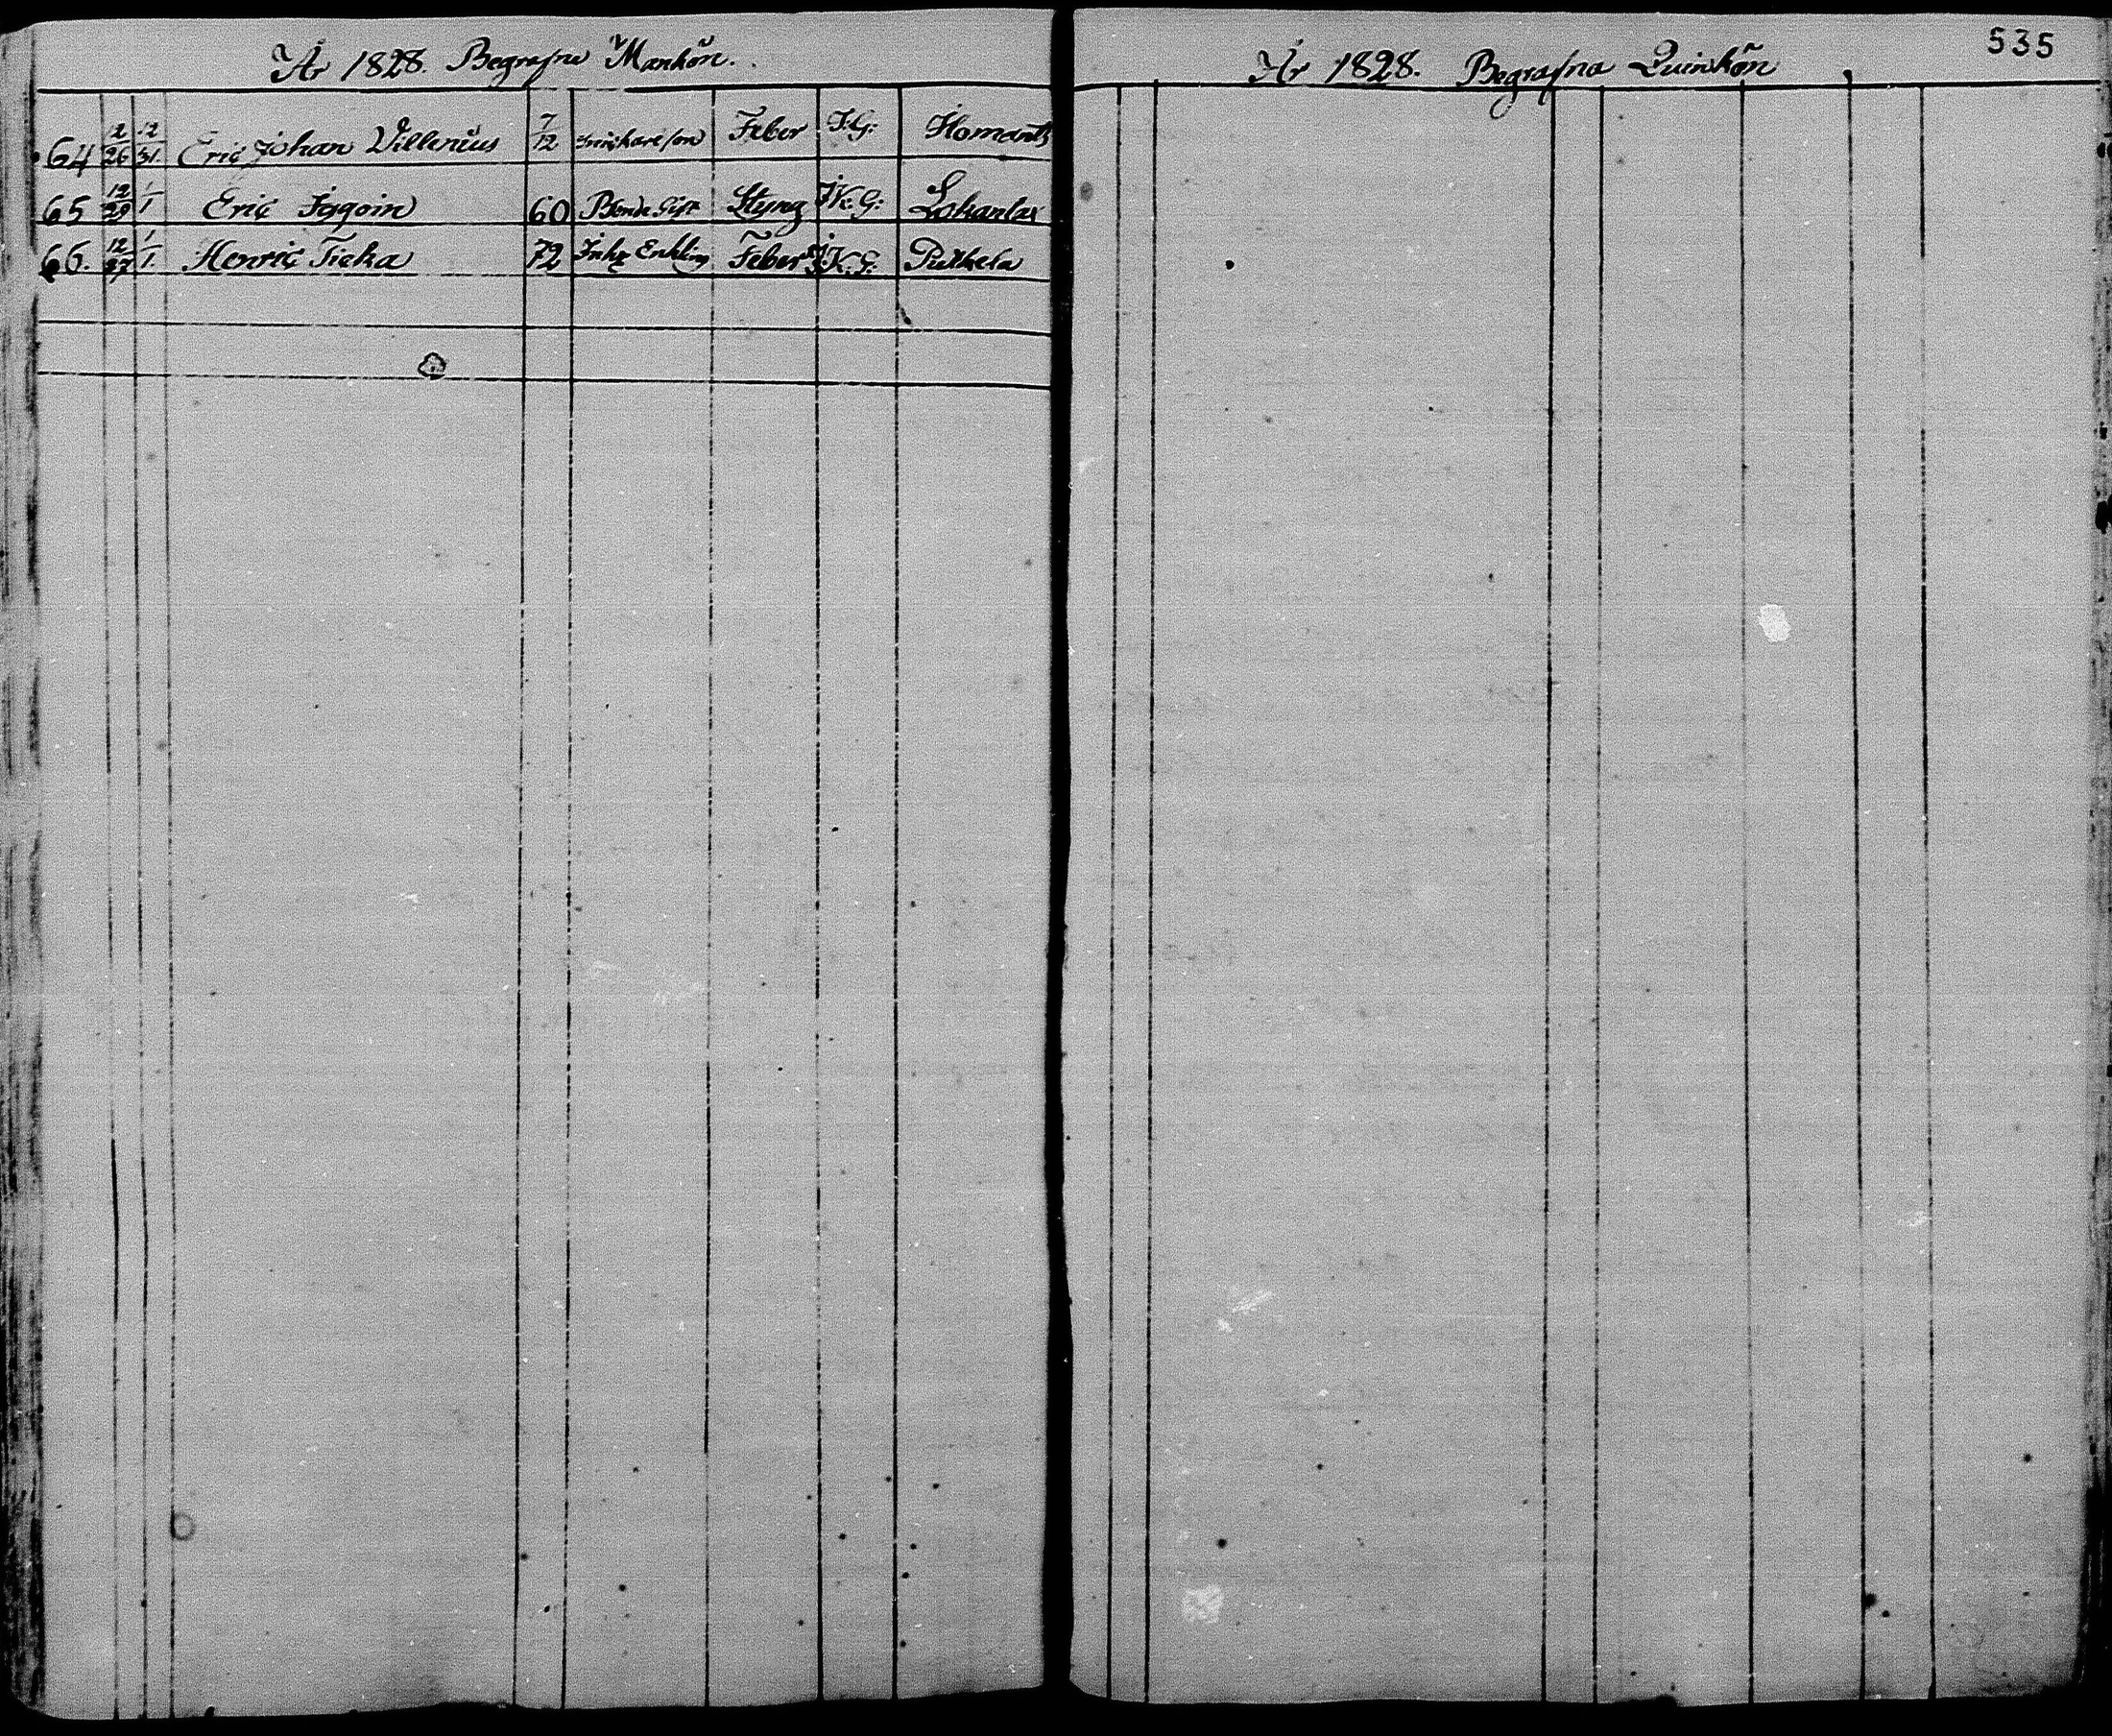 År 1828. Begrafne Mankön.
64 12/26 12/31 Eric Johan Villenius 7/12 Snickare son Feber I.G: Ilomants
65 12/29 1/1 Eric Iggoin 60 Bonde Gift Styng I K. G: Lokanlax
66. 12/27 1/1. Henric Tieka 72 Inhs Enkling Feber I K. G: Putkela
År 1828. Begrafna Quinkön
535